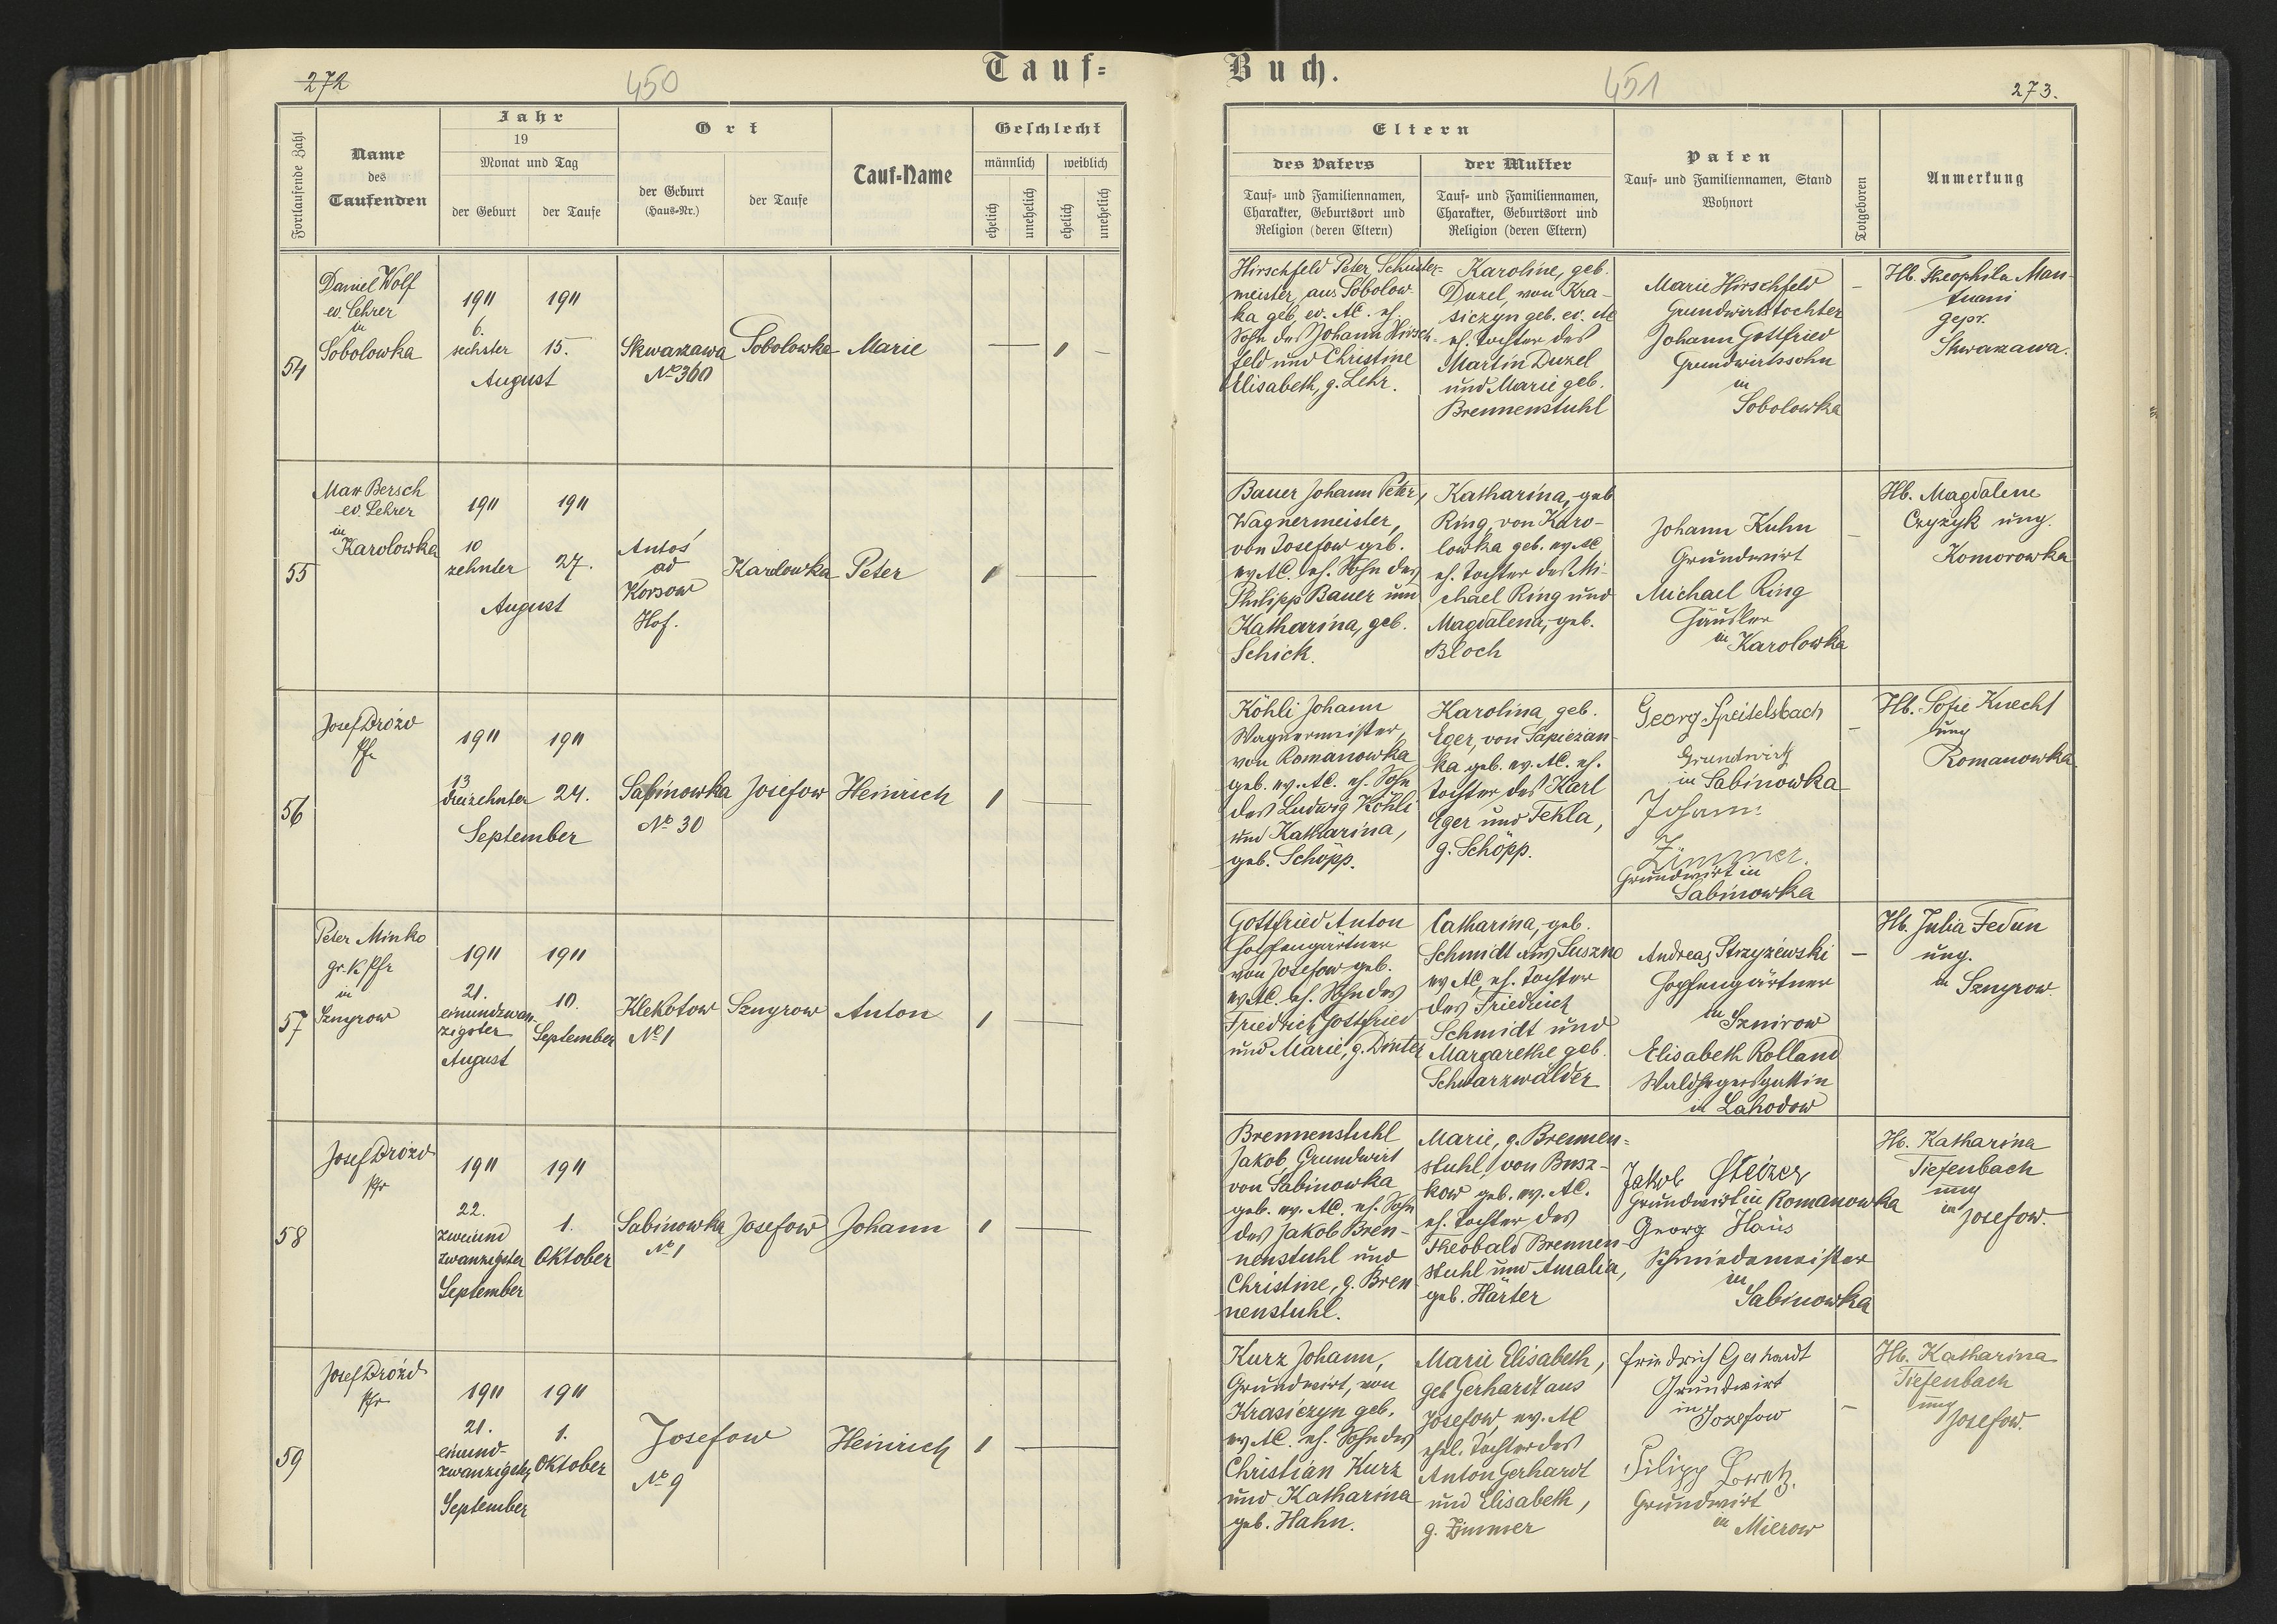 272
450
Tauf=
Buch.
451
273.
Fortlaufende Zahl
Name
des
Taufenden
Jahr
19
Monat und Tag
der Geburt
der Taufe
Ort
der Geburt
(Haus-Nr.)
der Taufe
Tauf-Name
Geschlecht
männlich
weiblich
ehelich
unehelich
ehelich
unehelich
Eltern
des Vaters
Tauf- und Familiennamen,
Charakter, Geburtsort und
Religion (deren Eltern)
der Mutter
Tauf- und Familiennamen,
Charakter, Geburtsort und
Religion (deren Eltern)
Paten
Tauf- und Familiennamen, Stand
Wohnort
Totgeboren
Anmerkung
54
Daniel Wolf
ev. Lehrer
in
Sobolowka
1911
6.
sechster
August
1911
15.
Skwarzawa
No 360
Sobolowka
Marie
— 1 —
Hirschfeld Peter, Schuster=
meister, aus Sobolow
ka geb. ev. AC. eh.
Sohn des Johann Hirsch-
feld und Christine
Elisabeth, g. Lehr.
Karoline, geb.
Duzel, von Kra-
siczyn geb. ev. AC
eh. Tochter des
Martin Duzel
und Marie geb.
Brennenstuhl
Marie Hirschfeld
Grundwirtstochter
Johann Gottfried
Grundwirtssohn
in
Sobolowka
—
Hb. Theophila Man-
gepr.
55
Max Bersch
ev. Lehrer
in
Karolowka
1911
10
zehnter
August
1911
27.
Antoś
ad
Korsow
Hof.
Karolowka
Peter
1 —
Bauer Johann Peter,
Wagnermeister,
von Josefow geb.
ev. AC. eh. Sohn des
Philipp Bauer und
Katharina, geb.
Schick.
Katharina, geb
Ring, von Karo-
lowka geb. ev. AC
eh. Tochter des Mi-
chael Ring und
Magdalena, geb.
Bloch
Johann Kuhn
Grundwirt
Michael Ring
Häusler
in Karolowka
—
Hb. Magdalene
Czyzyk ung.
Komorowka
56
Josef Drozd
Pfr
1911
13
dreizehnter
September
1911
24.
Sabinowka
No 30
Josefow
Heinrich
1 —
Köhli Johann
Wagnermeister,
von Romanowka
geb. ev. AC. eh. Sohn
des Ludwig Köhli
und Katharina,
geb. Schöpp.
Karolina, geb.
Eger, von Sapiezan-
ka geb. ev. AC. eh.
Tochter des Karl
Eger und Tekla,
g. Schöpp.
Georg Speitelsbach
Grundwirt
in Sabinowka
Johann
Zimmer.
Grundwirt in
Sabinowka
—
Hb. Sofie Knecht
ung
Romanowka
57
Peter Minko
gr. K Pfr
in
Sznyrow
1911
21.
einundzwan-
zigster
August
1911
10.
September
Klekotow
No 1
Sznyrow
Anton
1 —
Gottfried Anton
Hopfengärtner
von Josefow geb.
ev. AC. eh. Sohn des
Friedrich Gottfried
und Marie, g. Dinter
Catharina, geb.
Schmidt aus Suszno
ev AC, eh. Tochter
des Friedrich
Schmidt und
Margarethe geb.
Schwarzwälder
Andreas Strzyżewski
Hopfengärtner
in
Sznirow
Elisabeth Rolland
Waldhegersgattin
in Lahodow
—
Hb. Julia Fedun
ung.
in Sznyrow.
58
Josef Drozd
Pfr
1911
22.
zweiund
zwanzigster
September
1911
1.
Oktober
Sabinowka
No 1
Josefow
Johann
1 —
Brennenstuhl
Jakob, Grundwirt
von Sabinowka
geb. ev. AC. eh. Sohn
des Jakob Bren-
nenstuhl und
Christine, g. Bren
nenstuhl.
Marie, g. Brennen=
stuhl, von Busz-
kow geb. ev. AC.
eh. Tochter des
Theobald Brennen-
stuhl und Amalia,
geb. Härter
Jakob
Grundwirt in Romanowka
Georg Haus
Schmiedemeister
in
Sabinowka
Hb. Katharina
Tiefenbach
ung
in Josefow.
59
Josef Drozd
Pfr
1911
21.
einund-
zwanzigster
September
1911
1.
Oktober
Josefow
No 9
Heinrich
1 —
Kurz Johann,
Grundwirt, von
Krasiczyn geb.
ev AC. eh. Sohn des
Christian Kurz
und Katharina
geb. Hahn.
Marie Elisabeth,
geb Gerhardt aus
Josefow, ev. AC
ehel. Tochter des
Anton Gerhardt
und Elisabeth,
g. Zimmer
Friedrich Gerhardt
Grundwirt
in
Jozefow
Filipp
Grundwirt
in Mierow
—
Hb. Katharina
Tiefenbach
ung
Josefow.